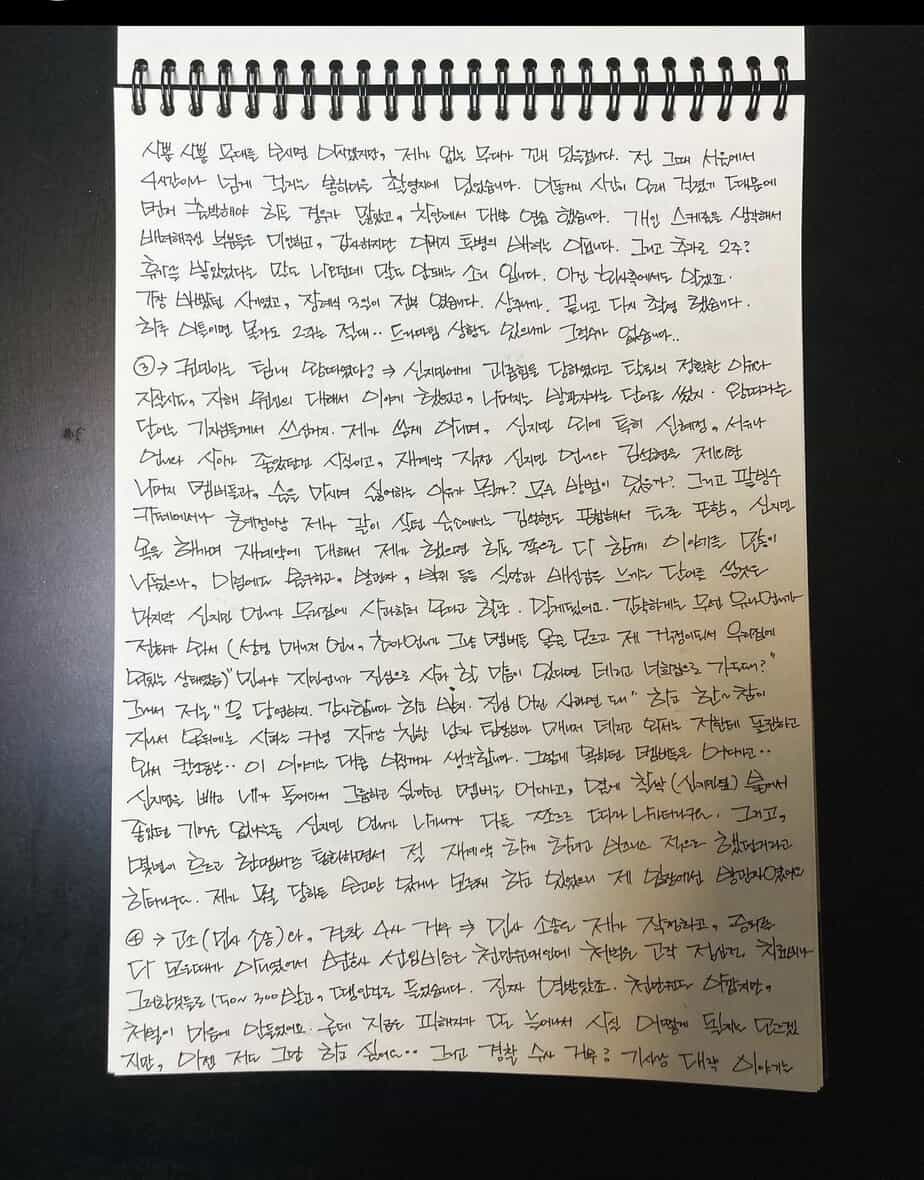 사뿐 사뿐 무대를 보시면 아시겠지만, 제가 없는 무대가 꽤 있을겁니다. 전 그때 서울에서
4시간이나 넘게 걸리는 봉하마을 촬영지에 있었습니다. 어떻게 시간이 오래 걸렸기 때문에
먼저 출발해야 하는 경우가 많았고, 차안에서 대본 연습 했습니다. 개인 스케줄을 생각해서
배려해주신 부분들은 미안하고, 감사하지만 아버지 투병의 배려는 아닙니다. 그리고 추가로 2주?
휴가를 받았었다는 말도 나오던데 말도 안돼는 소리 입니다. 이건 회사측에서도 알겠죠.
가장 바빴던 시기였고, 장례식 3일이 전부 였습니다. 상주니까. 끝나고 다시 촬영 했습니다.
하루 이틀이면 몰라도 2주는 절대.. 드라마팀 상황도 있으니까 그럴수가 없습니다..
③→ 권민아는 팀내 왕따였다? ⇒ 신지민에게 괴롭힘을 당하였다고 탈퇴의 정확한 이유와
지목시도, 자해 부분의 대해서 이야기 했었고, 나머지는 방관자라는 단어를 썼지. 왕따라는
단어는 기자님들께서 쓰신거지. 제가 쓴게 아니며, 신지민 외에 특히 신혜정, 서유나
언니와 사이가 좋았던건 사실이고, 재계약 직전 신지민 언니와 김설현을 제외한
나머지 멤버들과, 술을 마시며 싫어하는 이유가 뭘까? 무슨 방법이 있을까? 그리고 팥빙수
카페에서나 혜정이랑 제가 같이 살던 숙소에서는 김설현도 포함해서 모두 포함, 신지민
욕을 해가며 재계약에 대해서 제가 했으면 하는 쪽으로 다 함께 이야기를 많이
나눴으나, 이럼에도 불구하고, 방관자, 방치 등등 실망과 배신감을 느끼는 단어를 쓴것은
마지막 신지민 언니가 우리집에 사과하러 온다고 할때. 알게됐어요. 간략하게는 우선 유나언니가
전화가 와서 (상황 매니저 언니, 초아언니가 그냥 멤버들 올줄 모르고 제 걱정이되서 우리집에
와있는 상태였음) "민아야 지민언니가 진심으로 사과 할 마음이 있다면 데리고 너희집으로 가도돼?"
그래서 저는 "응 당연하지. 감사합니다 하고 받지. 진심 어린 사과면 돼" 하고 한~참이
지나서 모두에는 사과는 커녕 자기랑 친한 남자 팀장님과 매니저 데리고 와서는 저한테 도끼하고
와서 칼소동난.. 이 이야기는 대충 아실꺼라 생각합니다. 그렇게 욕하던 멤버들은 어디가고..
신지민을 빼고 내가 들어와서 그룹하고 싶다던 멤버는 어디가고, 몇년에 착한 (신지민팀) 들어서
좋았던 기억은 없다는둥 신지민 언니가 나가니까 다들 쪼르르 따라 나가더라구요. 그리고,
몇년이 흐르고 한멤버랑 통화하면서 절 재계약 하게 하려고 비즈니스 적으로 했던거라고
하더라구요. 제가 뭘 당하든 손고만 있거나 모른채 하고 있었으니 제 입장에선 방관자였어요
④→ 고소(민사 소송)와, 경찰 수사 거부 ⇒ 민사 소송은 제가 작정하고, 증거를
다 모은때가 아니였어서 변호사 선임비용은 천만원대인데 처벌은 고작 접심전. 치료비나
그러한것들로 150~300받고, 땡이라고 들었습니다. 진짜 열받았죠. 천만원도 아깝지만,
처벌이 마음에 안들었어요. 근데 지금은 피해자가 또 늘어나서 사실 어떻게 될지는 모르겠
지만, 이젠 저도 그만 하고 싶어요.. 그리고 경찰 수사 거부? 기사랑 대략 이야기는